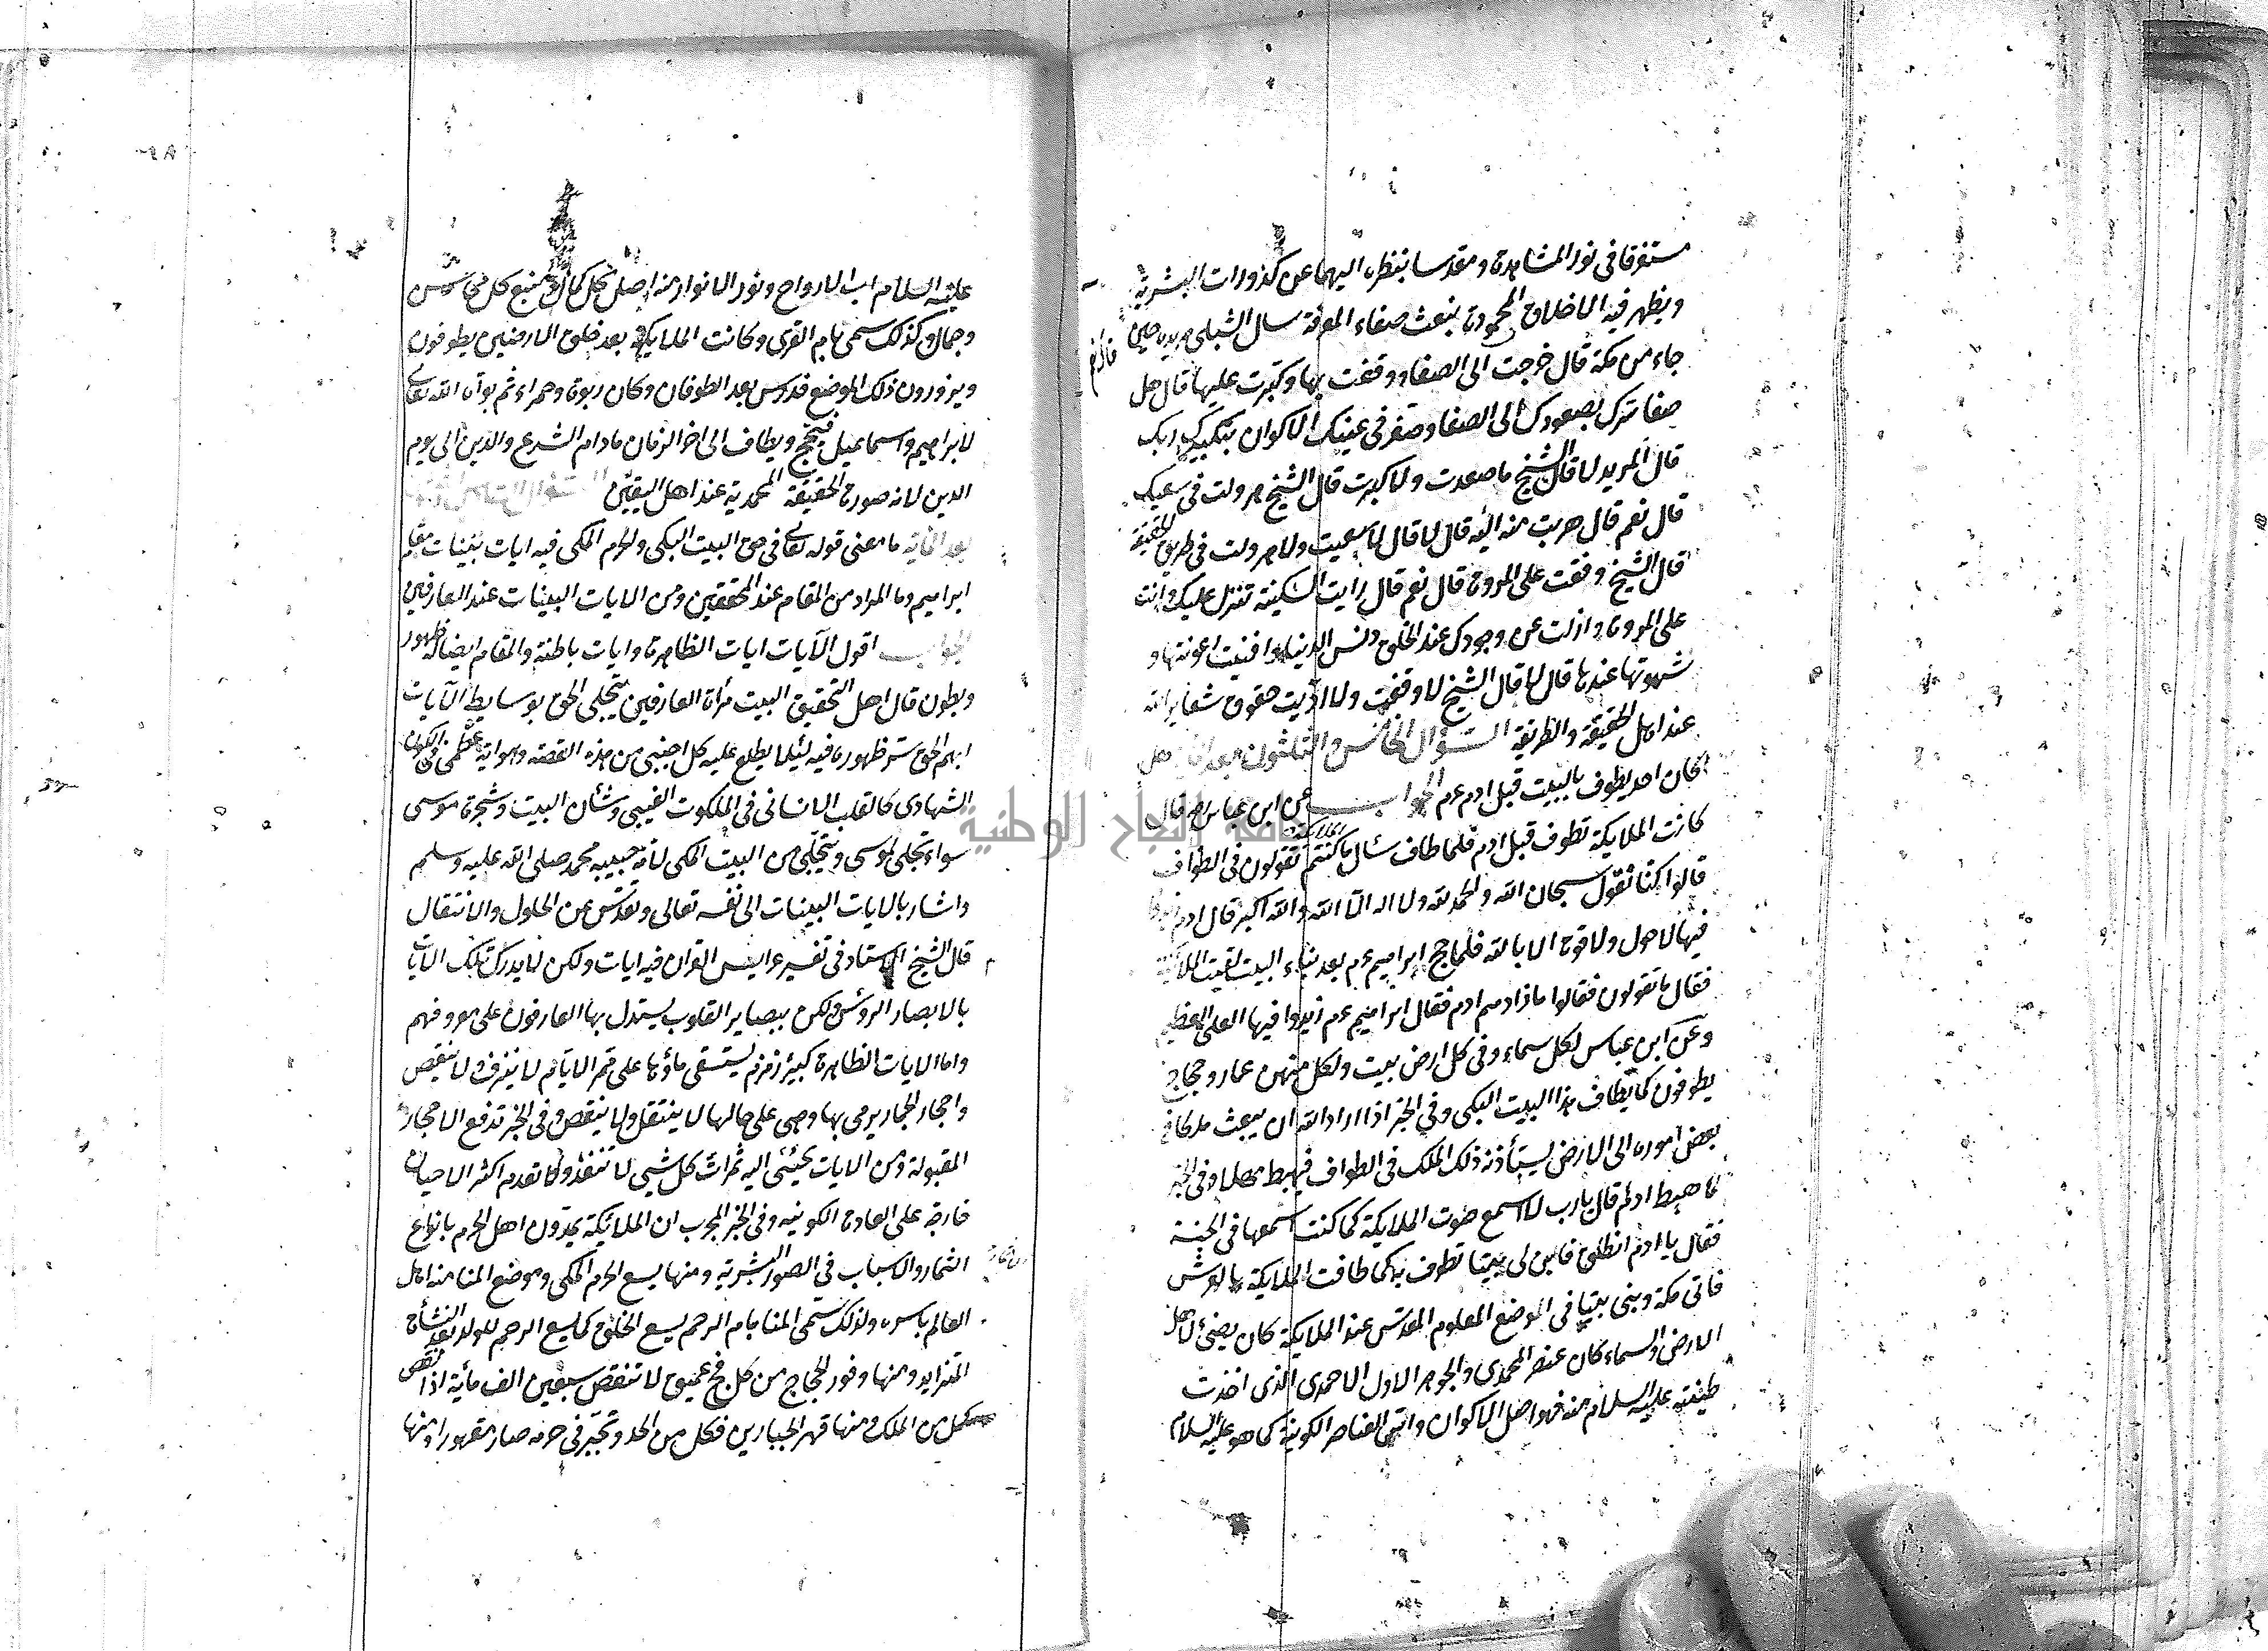 مستغرقا فى نور المشاهدة ومقدسا بنظره اليهما عن كذورات البشرية
ويظهر فيه الاخلاق المحمودة بنعت صفاء المعرفة سال الشبلى مريده حين
جاء من مكة قال خرجت الى الصفا ووقفت بها وكبرت عليها قال هل
صفا سرك بصعودك الى الصفا وصغر فى عينيك الاكوان بتكبيرك ربك
قال المريد لا قال الشيخ ما صعدت ولا كبرت قال الشيخ هرولت فى سعيك
قال نعم قال هربت منه اليه قال لا قال لا سعيت ولا هرولت فى طريق الحقيقة
قال الشيخ وقفت على المروة قال نعم قال رايت السكينة تنزل عليك وانت
على المروة وازلت عن وجودك عند الخلق دنس الدنيا وافنيت رعونتها و
شهوتها عندها قال لا قال الشيخ لا وقفت ولا اديت حقوق شعاير الله
عند اهل الحقيقة والطريقة السؤال الخامس والثلثون بعد المائة هل
كان احد يطوف بالبيت قبل ادم عم الجواب عن ابن عباس رض قال
كانت الملايكة تطوف قبل ادم فلما طاف سئال الملايكة ما كنتم تقولون فى الطواف
قالوا كنا نقول سبحان الله والحمد لله ولا اله الا الله والله اكبر قال ادم زيدوا
فيها لا حول ولا قوة الا بالله فلما حج ابراهيم عم بعد بناء البيت لقيت الملائكة
فقال ما تقولون فقالوا ما زادهم ادم فقال ابراهيم عم زيدوا فيها العلى العظيم
وعن ابن عباس لكل سماء وفى كل ارض بيت ولكل منهن عمار وحجاج
يطوفون كما يطاف هذا البيت البكى وفى الخبر اذا اراد الله ان يبعث ملكا فى
بعض اموره الى الارض يستأذنه ذلك الملك فى الطواف فيهبط مهللا وفى الخبر
لما هبط ادم قال يارب لا اسمع صوت الملايكة كما كنت اسمعها فى الجنة
فقال يا ادم انطلق فابن لى بيتا تطوف به كما طافت الملايكة بالعرش
فاتى مكة وبنى بيتا فى الموضع المعلوم المقدس عند الملايكة كان يضئ لاهل
الارض والسماء كان عنصر المحمدى والجوهر الاول الاحمدى الذى اخذت
طينته عليه السلام منه فهو اصل الاكوان واتم العناصر الكونية كما هو عليه السلام
عليه السلام اب الارواح ونور الانوار منه اصل كل كمال ومنبع كل محاسن
وجمال وكذلك سمى بام القرى وكانت الملايكة بعد خلق الارضين يطوفون
ويزورون ذلك الموضع فدرس بعد الطوفان وكان ربوة وحمراء ثم بواه الله تعالى
لابراهيم واسماعيل فيحج ويطاف الى اخر الزمان مادام الشرع والدين الى يوم
الدين لانه صورة الحقيقة المحمدية عند اهل اليقين
بعد المائة ما معنى قوله تعالى فى حق البيت البكى والحرم المكى فيه ايات بينات مقام
ابراهيم وما المراد من المقام عند المحققين ومن الايات البينات عند العارفين
الجواب اقول الآيات ايات الظاهرة وايات باطنة والمقام ايضا له ظهور
وبطون قال اهل التحقيق البيت مرأة العارفين يتجلى الحق بوسايط الآيات
ابهم الحق ستر ظهوره فيه لئلا يطلع عليه كل اجنبى من هذه القصة وهو اية عظمى فى الكون
الشهادى كالقلب الانسانى فى الملكوت الغيبى وشأن البيت وشجرة موسى
سواء تجلى لموسى ويتجلى من البيت المكى لامة حبيبه محمد صلى الله عليه وسلم
واشار بالايات البينات الى نفسه تعالى وتقدس عن الحلول والانتقال
قال الشيخ الاستاد فى تفسير عرايس القران فيه ايات ولكن لا يدرك تلك الايات
بالابصار الرؤس ولكن ببصاير القلوب يستدل بها العارفون على معروفهم
واما الايات الظاهرة كبير زمزم يستسقى ماؤها على ممر الايام لا ينزف ولا ينقص
واحجار الجمار يرمى بها وهى على حالها لا ينتقل ولا ينقص وفى الخبر ترفع الاحجار
المقبولة ومن الايات يجئى اليه ثمرات كل شيى لا تنفد ولا تعدم اكثر الاحيان
خارقة على العادة الكونيه وفى الخبر المجرب ان الملائكة يمدون اهل الحرم بانواع
الثمار والاسباب فى الصور البشرية ومنها يسع الحرم المكى وموضع المنا منه اهل
العالم باسره ولذلك سمى المنا بام الرحم يسع الخلق كما يسع الرحم للولد بعد النشأة
المتزايد ومنها وفور الحجاج من كل فج عميق لا تنقص سبعين الف مائية اذا نقص
كمل من الملك ومنها قهر الجبارين فكل من الحد وتجبر فى حرمه صار مقهورا ومنها
جامعة النجاح الوطنية